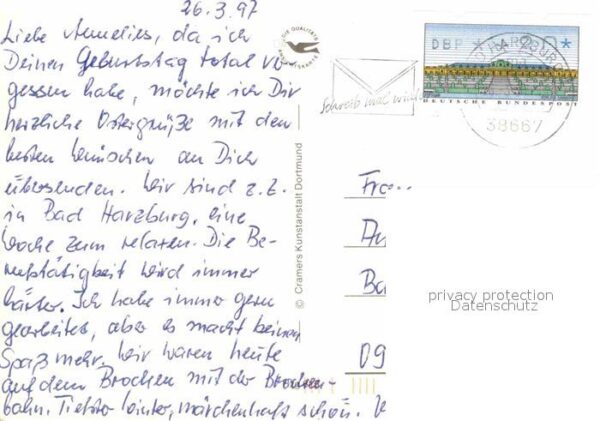 26.3.97
Liebe Annelies, da ich
Deinen Geburtstag total ver
gessen habe, möchte ich Dir
herzliche Ostergrüße mit den
besten Wünschen an Dich
übersenden. Wir sind z.Z.
in Bad Harzburg, eine
Woche zum relaxen. Die Be-
rufstätigkeit wird immer
härter. Ich habe immer gern
gearbeitet, aber es macht keinen
Spaß mehr. Wir waren heute
auf dem Brocken mit der Brocken-
bahn. Tiefster Winter, märchenhaft schön.
DIE QUALITÄTS
© Cramers Kunstanstalt Dortmund
Schreib mal wieder
DBP
DEUTSCHE BUNDESPOST
38667
Ba
09
privacy protection
Datenschutz